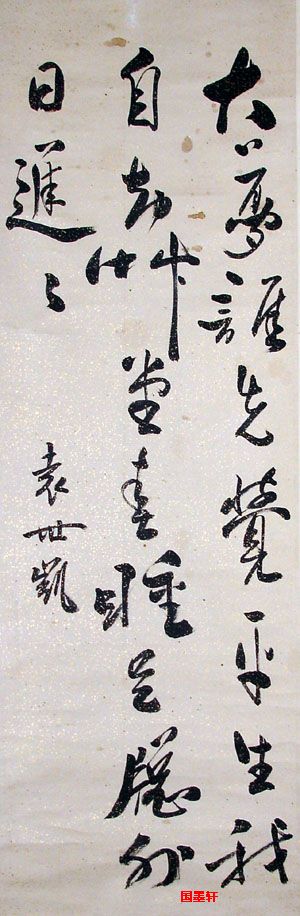 大夢誰先覺平生我
自知艸堂春睡足牕外
日遲〻
袁世凱
国墨轩